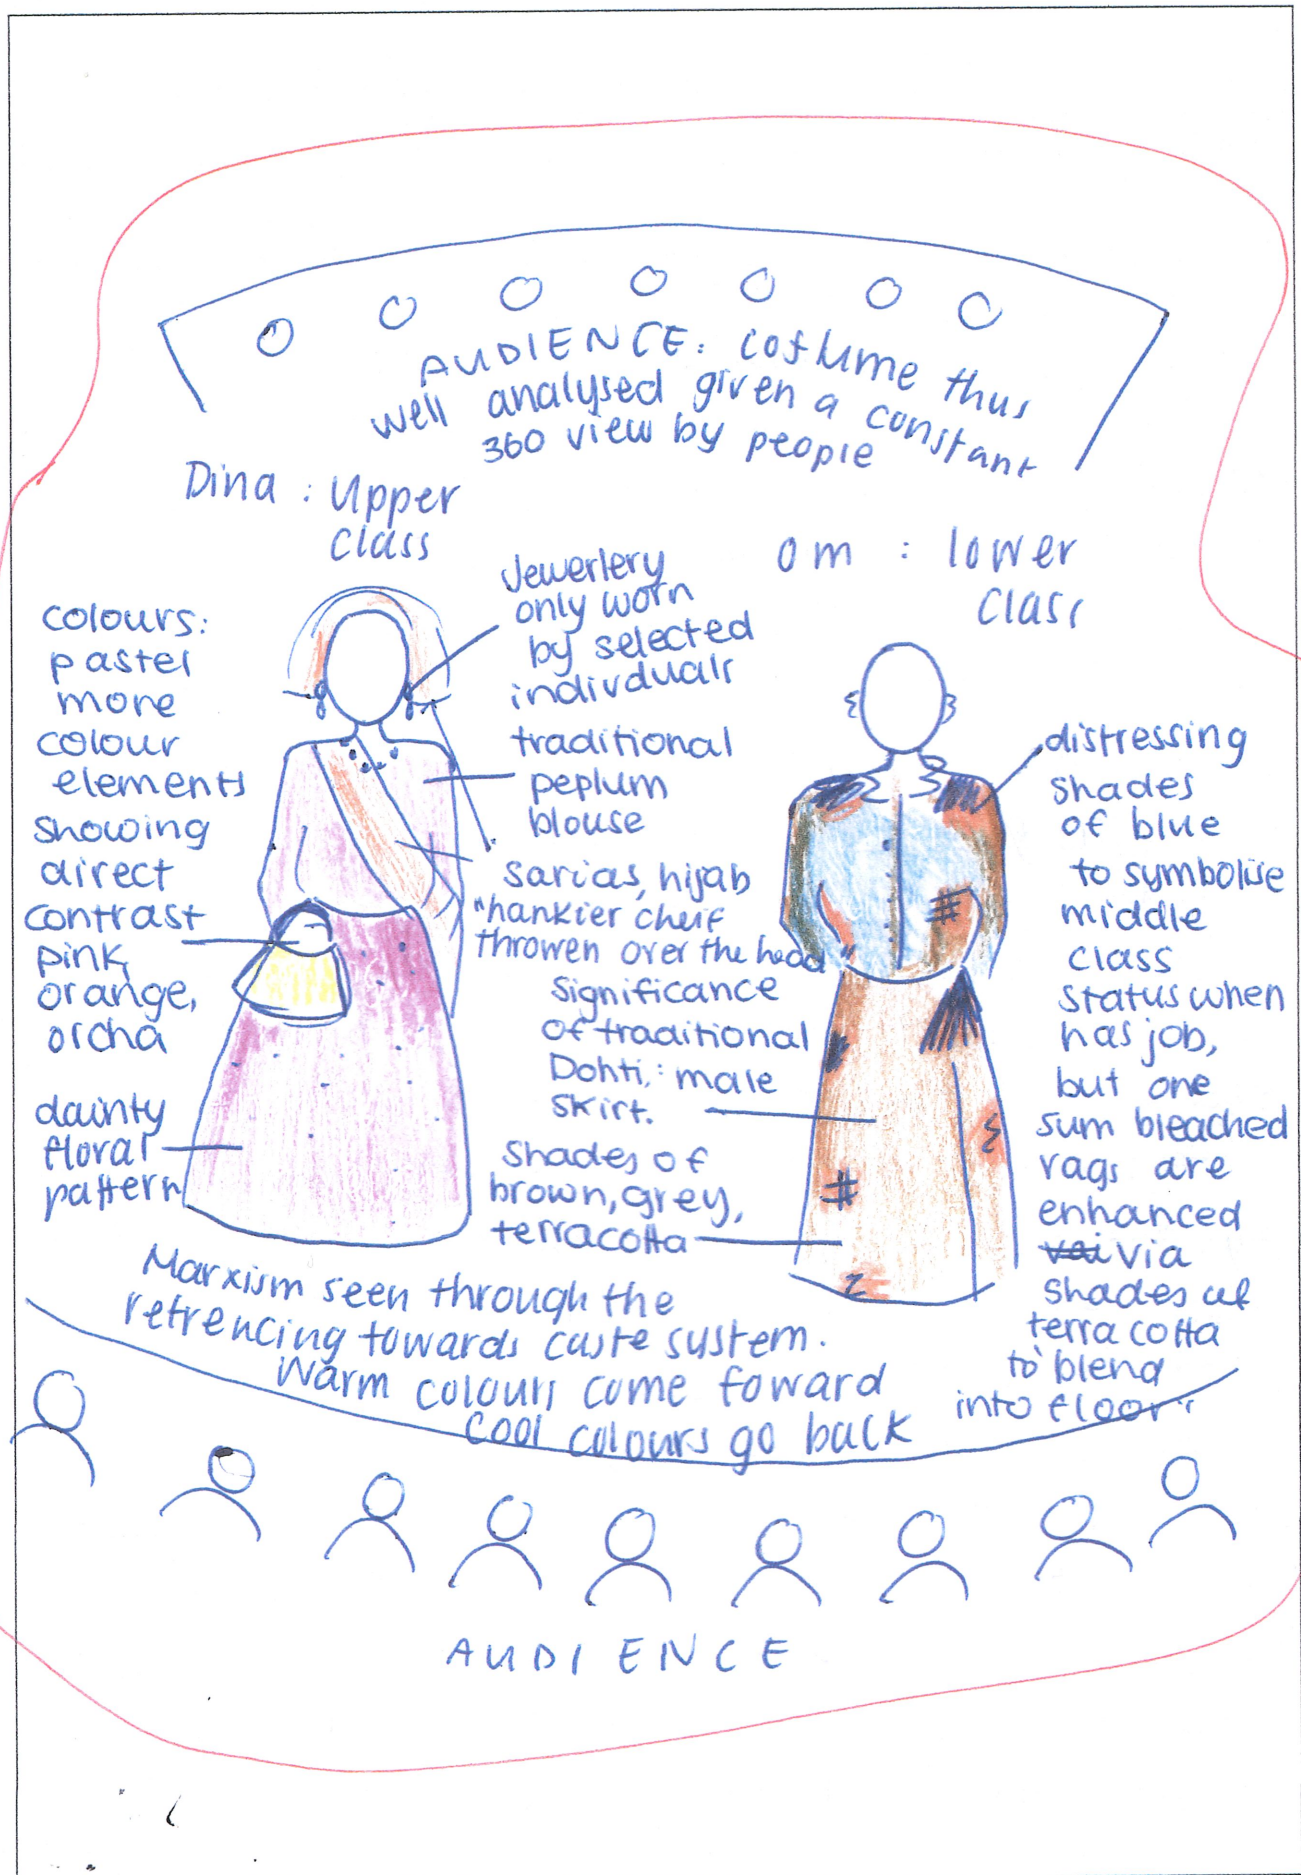 AUDIENCE: costume thus
well analysed given a constant
360 view by people
Dina : Upper
Class
Om : lower
Class
colours:
pastel
more
colour
elements
showing
direct
contrast
pink,
orange,
orcha
dainty
floral
pattern
Jewerlery
only worn
by selected
indivduals
traditional
peplum
blouse
sarias, hijab
"hankier cheif
throwen over the head"
significance
of traditional
Dohti,: male
skirt.
shades of
brown, grey,
terracotta
distressing
shades
of blue
to symbolise
middle
class
status when
has job,
but one
sum bleached
rags are
enhanced
via
shades of
terra cotta
to blend
into floor"
Marxism seen through the
refrencing towards caste system.
Warm colours come foward
cool colours go back
AUDIENCE